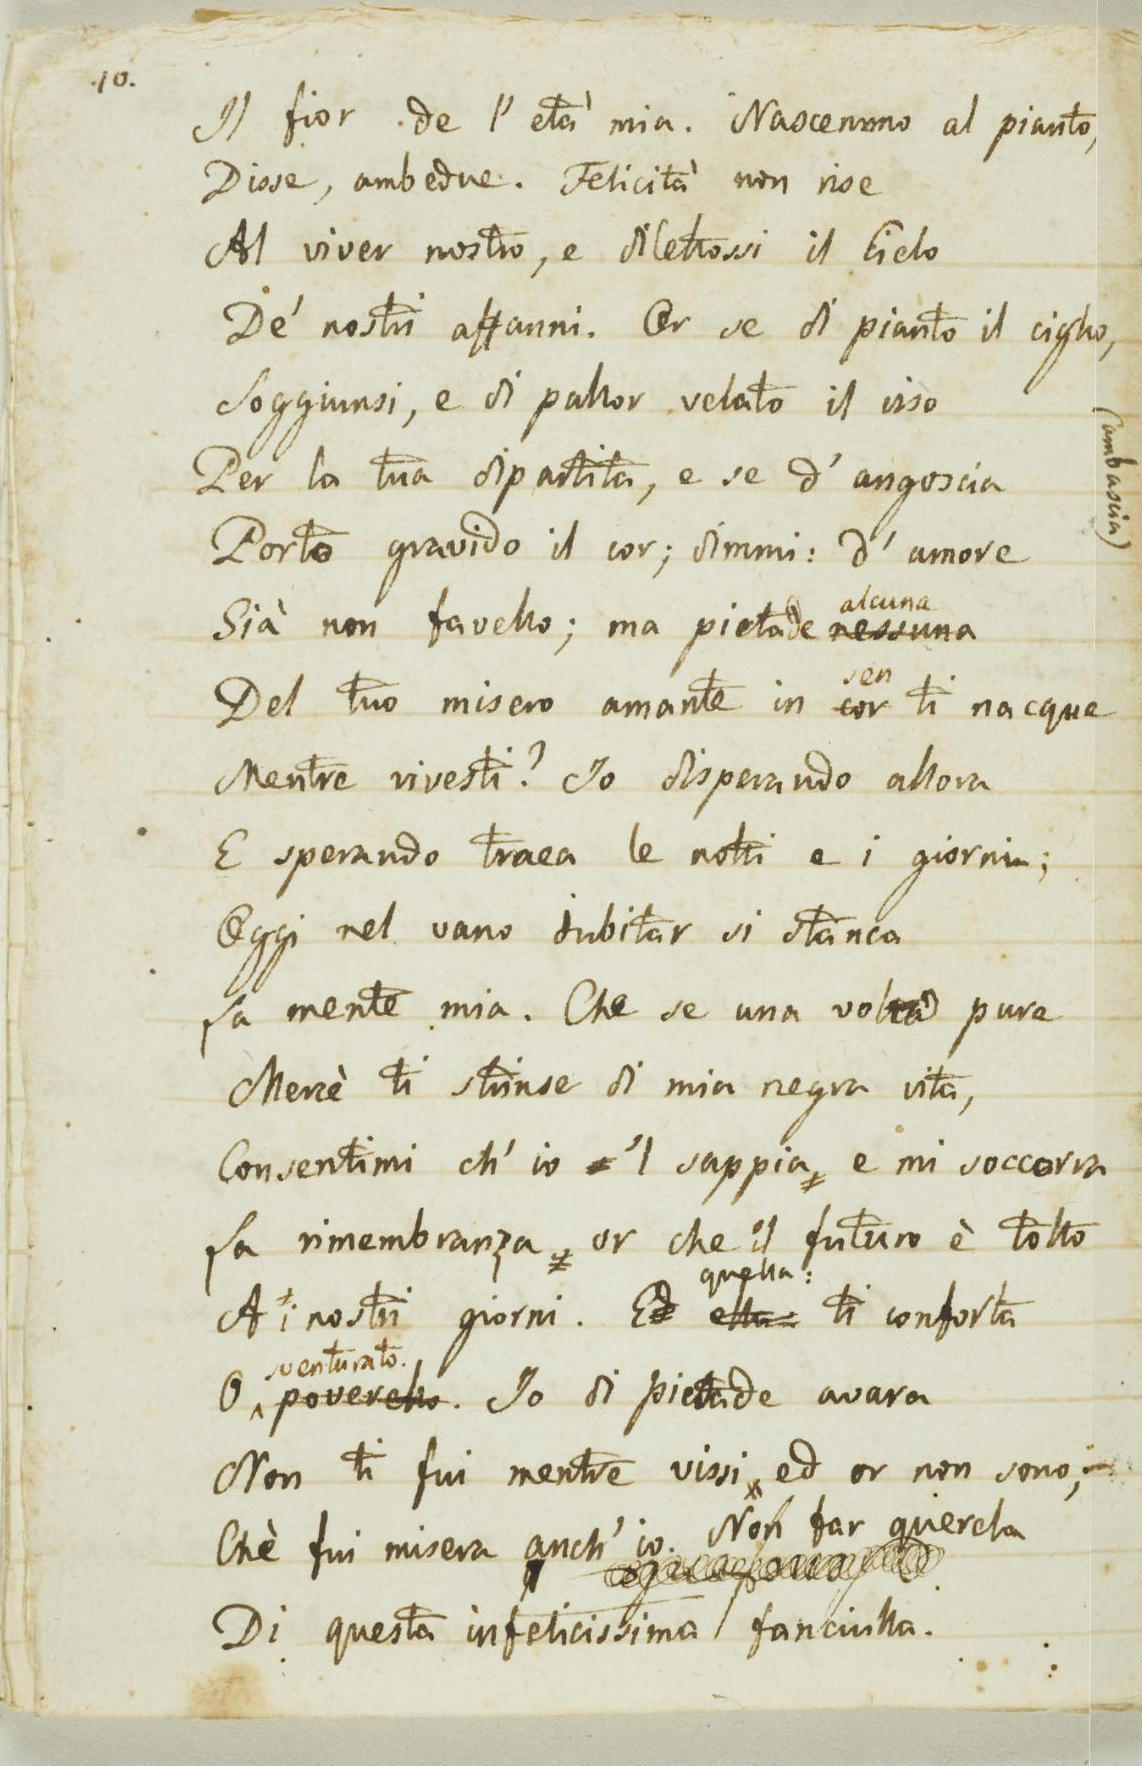 10.
Il fior de l' età mia. Nascemmo al pianto,
Disse, ambedue. Felicità non rise
Al viver nostro, e dilettossi il Cielo
De' nostri affanni. Or se di pianto il ciglio,
Soggiunsi, e di pallor velato il viso
Per la tua dipartita, e se d' angoscia
(ambascia)
Porto gravido il cor; dimmi: d' amore
Già non favello; ma pietade nessuna
alcuna
Del tuo misero amante in cor ti nacque
sen
Mentre vivesti? Io disperando allora
E sperando traea le notti e i giorni;
Oggi nel vano dubitar si stanca
La mente mia. Che se una volta pure
Mercè ti strinse di mia negra vita,
Consentimi ch' io 'l sappia, e mi soccorra
La rimembranza, or che il futuro è tolto
A i nostri giorni. Ed ella: ti conforta
quella:
O poverello. Io di pietade avara
sventurato.
Non ti fui mentre vissi, ed or non sono,
Chè fui misera anch' io. Non far querela
Di questa infelicissima fanciulla.